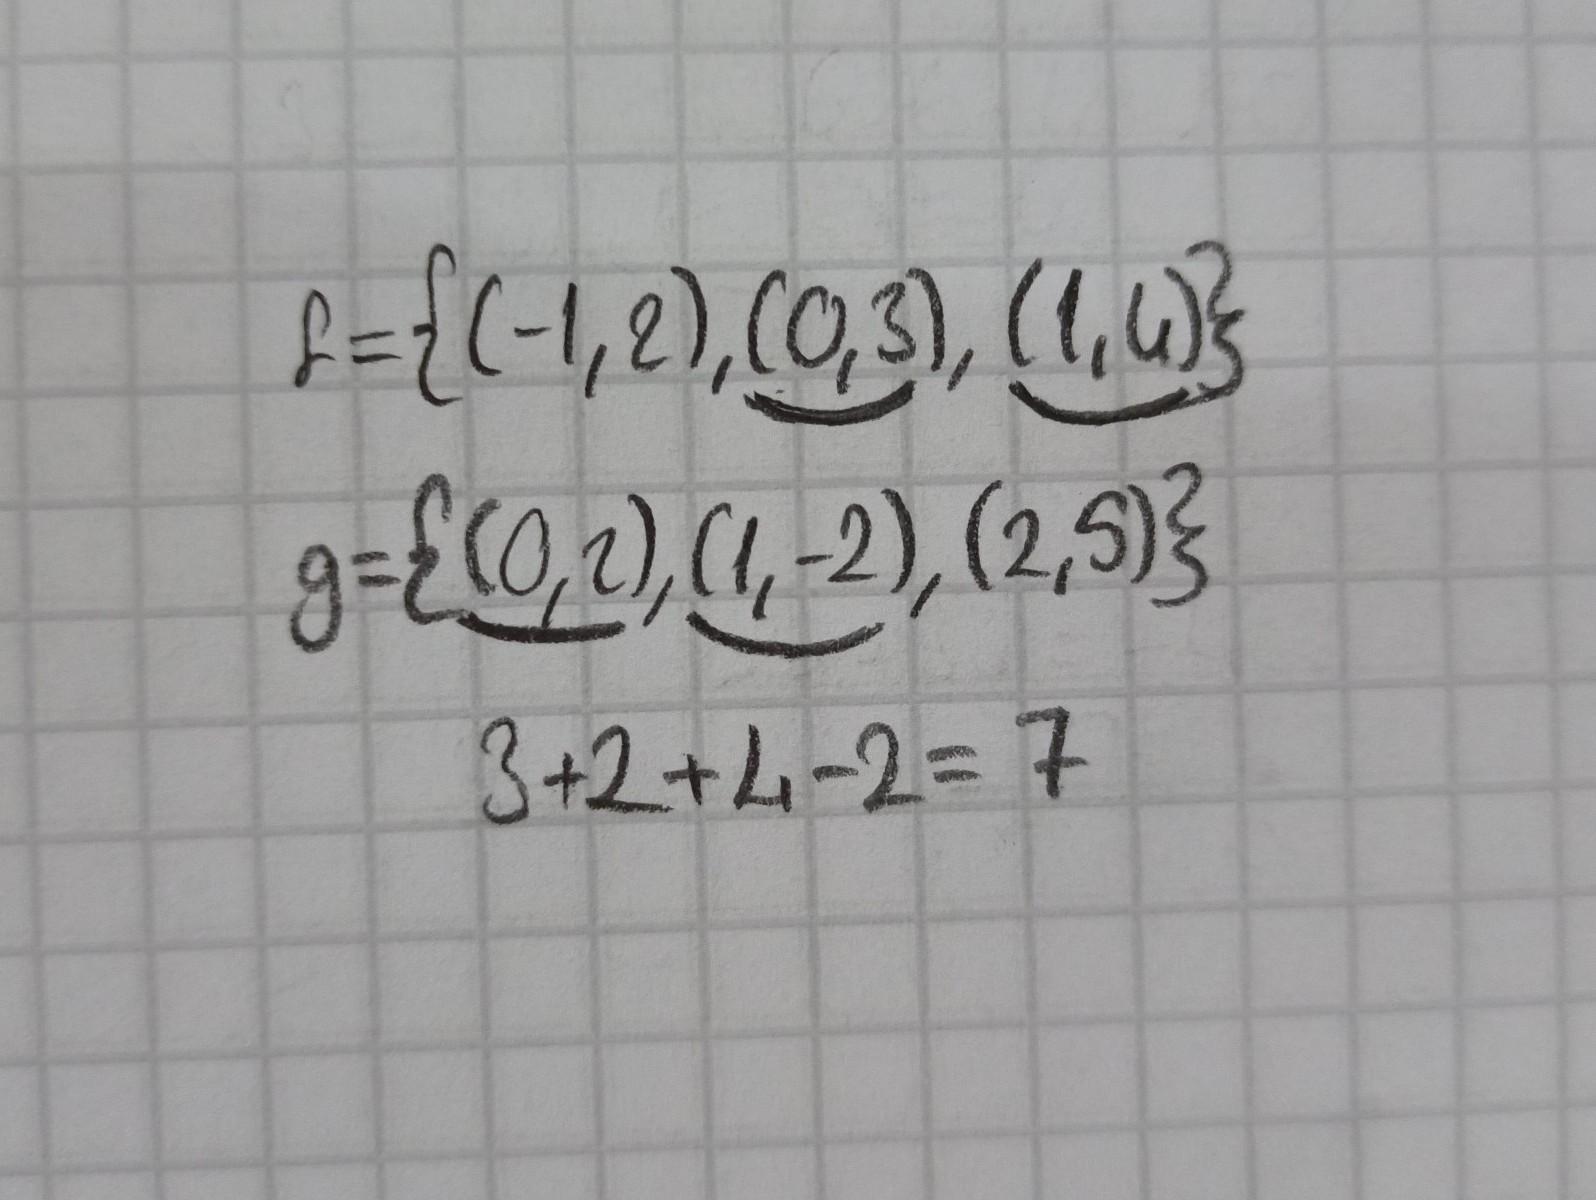 f={(-1,2),(0,3),(1,4)}
g={(0,2),(1,-2),(2,5)}
3+2+4-2=7